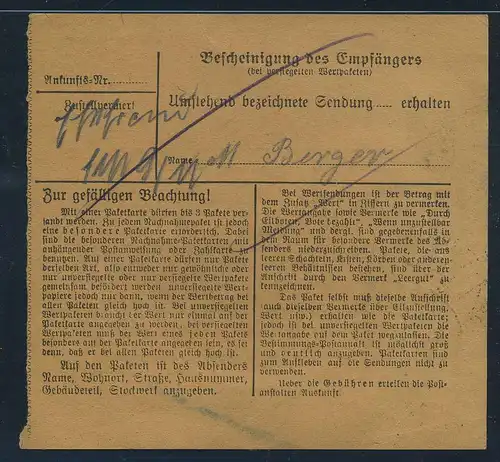 Bescheinigung des Empfängers
(bei versiegelten Wertpaketen)
Ankunfts-Nr. ..........
Zustellvermerk!
Umstehend bezeichnete Sendung ..... erhalten
Name M Berger
Zur gefälligen Beachtung!
Mit einer Paketkarte dürfen bis 3 Pakete ver-
sandt werden. Zu jedem Nachnahmepaket ist jedoch
eine besondere Paketkarte erforderlich. Dabei
sind die besonderen Nachnahme-Paketkarten mit
anhängender Postanweisung oder Zahlkarte zu
benutzen. Auf einer Paketkarte dürfen nur Pakete
derselben Art, also entweder nur gewöhnliche oder
nur unversiegelte oder nur versiegelte Wertpakete
gemeinsam befördert werden, unversiegelte Wert-
papiere jedoch nur dann, wenn der Wertbetrag bei
allen Paketen gleich hoch ist. Bei unversiegelten
Wertpaketen braucht der Wert nur einmal auf der
Paketkarte angegeben zu werden, bei versiegelten
Wertpaketen muß der Wert eines jeden Pakets
besonders auf der Paketkarte angegeben sein, es sei
denn, daß er bei allen Paketen gleich hoch ist.
Auf den Paketen ist des Absenders
Name, Wohnort, Straße, Hausnummer,
Gebäudeteil, Stockwerk anzugeben.
Bei Wertsendungen ist der Betrag mit
dem Zusatz „Wert" in Ziffern zu vermerken.
Die Wertangabe sowie Vermerke wie „Durch
Eilboten, Bote bezahlt", „Wenn unzustellbar
Meldung" und dergl. sind gegebenenfalls in
dem Raum für besondere Vermerke des Ab-
senders niederzuschreiben. Pakete, die aus
leeren Schachteln, Kisten, Körben oder anderen
leeren Behältnissen bestehen, sind über der
Anschrift durch den Vermerk „Leergut" zu
kennzeichnen.
Das Paket selbst muß dieselbe Aufschrift
auch dieselben Vermerke über Eilzustellung,
Wert usw.) erhalten wie die Paketkarte;
jedoch ist bei unversiegelten Wertpaketen die
Wertangabe auf dem Paket wegzulassen. Die
Bestimmungs-Postanstalt ist möglichst groß
und deutlich anzugeben. Paketkarten sind
zum Aufkleben auf die Sendungen nicht zu
verwenden.
Ueber die Gebühren erteilen die Post-
anstalten Auskunft.